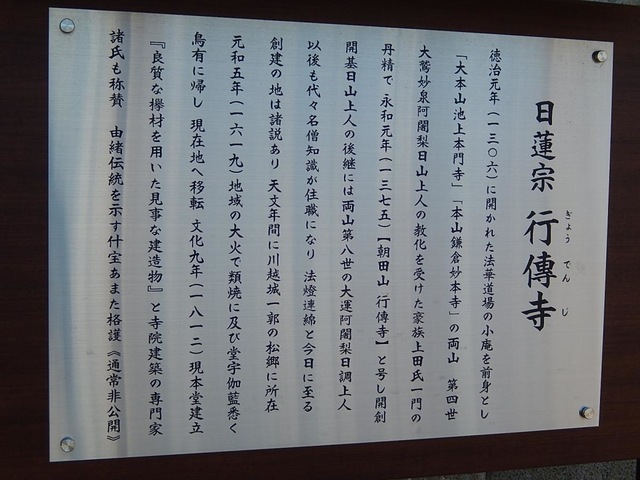 日蓮宗 行傳寺
ぎょう でん じ
徳治元年（一三〇六）に開かれた法華道場の小庵を前身とし
「大本山池上本門寺」「本山鎌倉妙本寺」の両山 第四世
大鷲妙泉阿闍梨日山上人の教化を受けた豪族上田氏一門の
丹精で 永和元年（一三七五）【朝田山 行傳寺】と号し開創
開基日山上人の後継には両山第八世の大運阿闍梨日調上人
以後も代々名僧知識が住職になり 法燈連綿と今日に至る
創建の地は諸説あり 天文年間に川越城一郭の松郷に所在
元和五年（一六一九）地域の大火で類焼に及び堂宇伽藍悉く
烏有に帰し 現在地へ移転 文化九年（一八一二）現本堂建立
『良質な欅材を用いた見事な建造物』と寺院建築の専門家
諸氏も称賛 由緒伝統を示す什宝あまた格護《通常非公開》